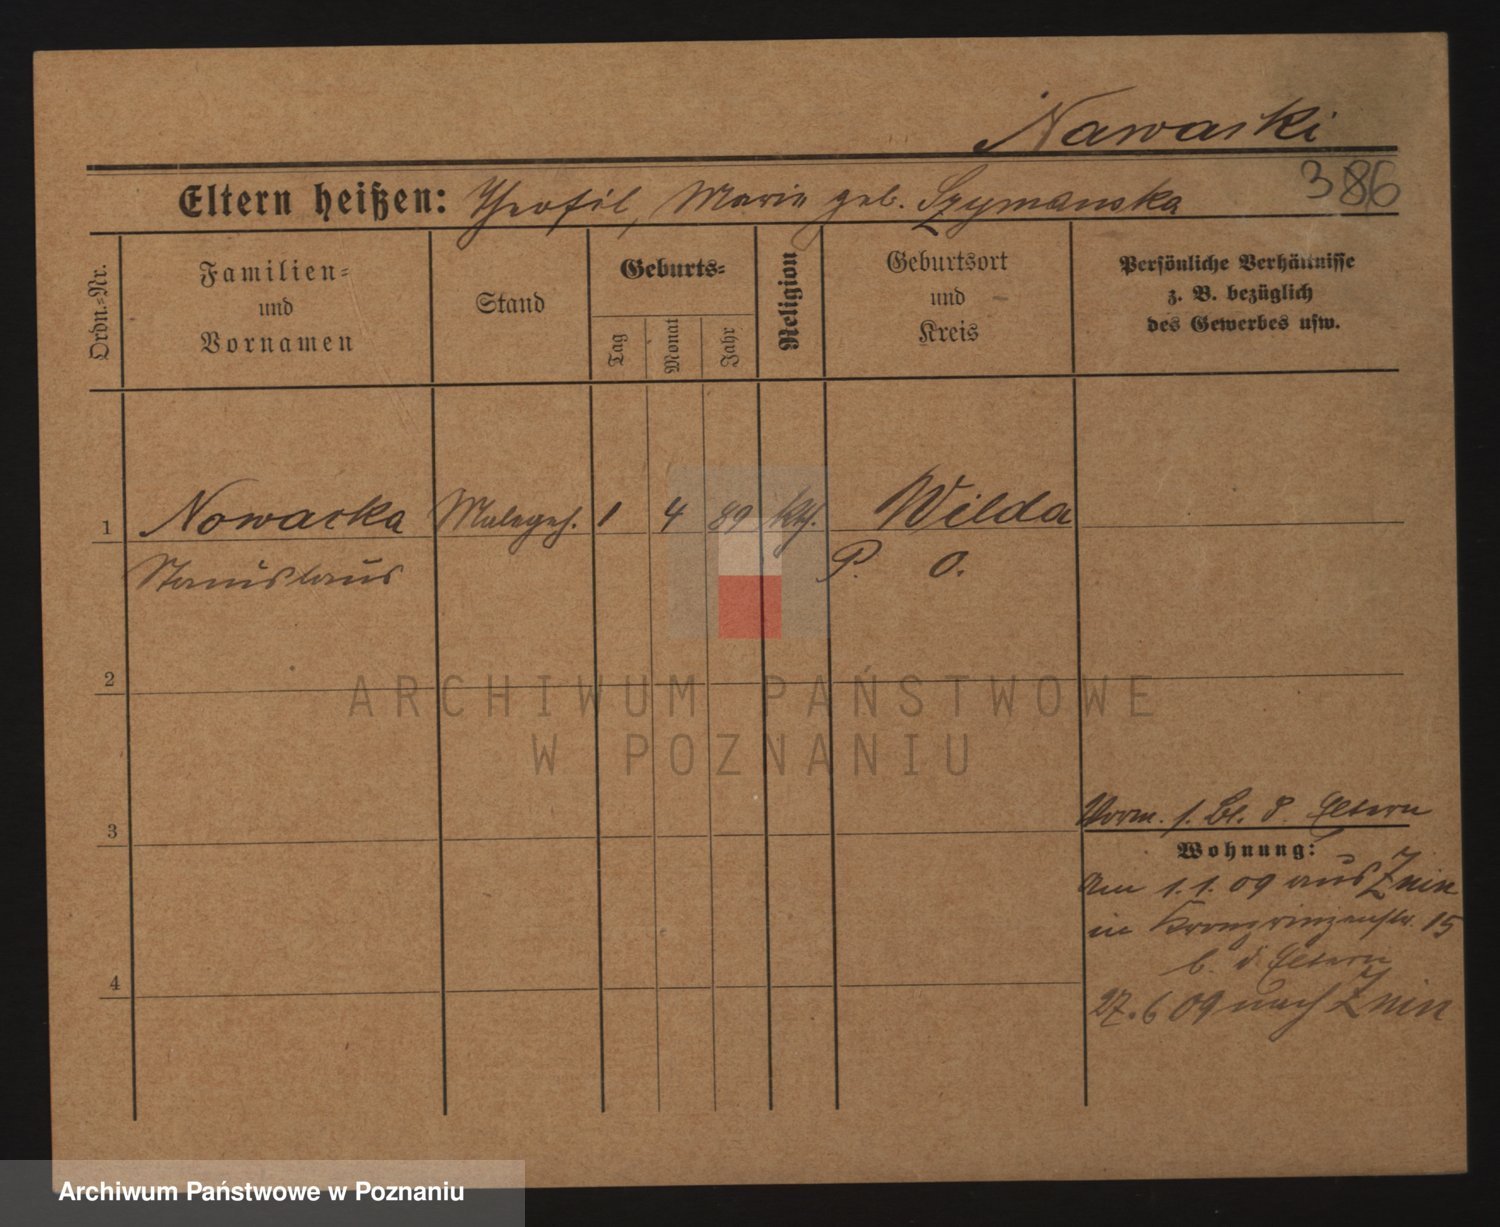 Nawaski
386
Eltern heißen: Theofil, Marie geb. Szymanska
Ordn.-Nr.
Familien-
und
Vornamen
Stand
Geburts-
Tag
Monat
Jahr
Religion
Geburtsort
und
Kreis
Persönliche Verhältnisse
z. B. bezüglich
des Gewerbes usw.
1 Nowacka Malergeh. 1 4 89 kth. Wilda
Stanislaus P. O.
2
ARCHIWUM PAŃSTWOWE
W POZNANIU
3
Vorm. s. Bl. d. Eltern
Wohnung:
Am 1.1.09 aus Znin
in Kronprinzenstr. 15
b. d Eltern
4
27.6 09 nach Znin
Archiwum Państwowe w Poznaniu